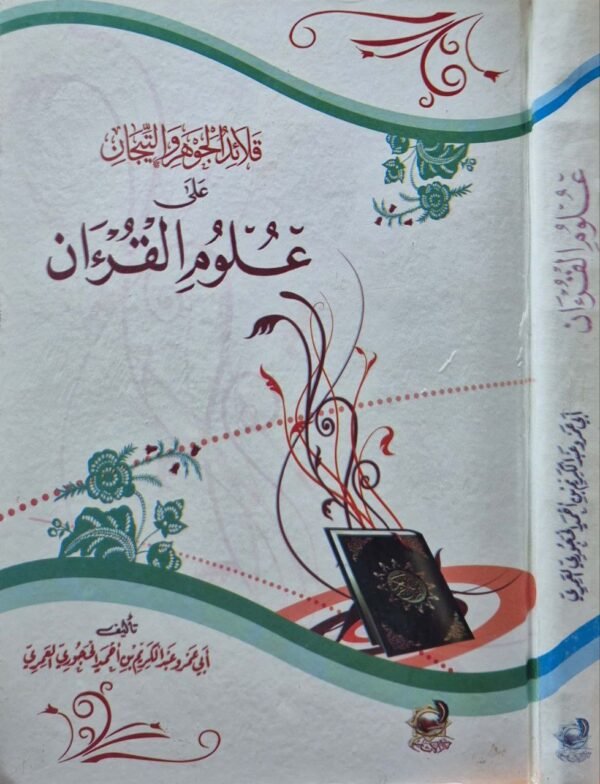 قَلَائِدُ الجَوْهَرِ وَالتِّيجَانِ
عَلَى
عُلُومِ القُرْءَان
تأليف
أبي عمرو عبد الكريم بن أحمد الحجوري العمري
عُلُومِ القُرْءَان
أبي عمرو عبد الكريم بن أحمد الحجوري العمري